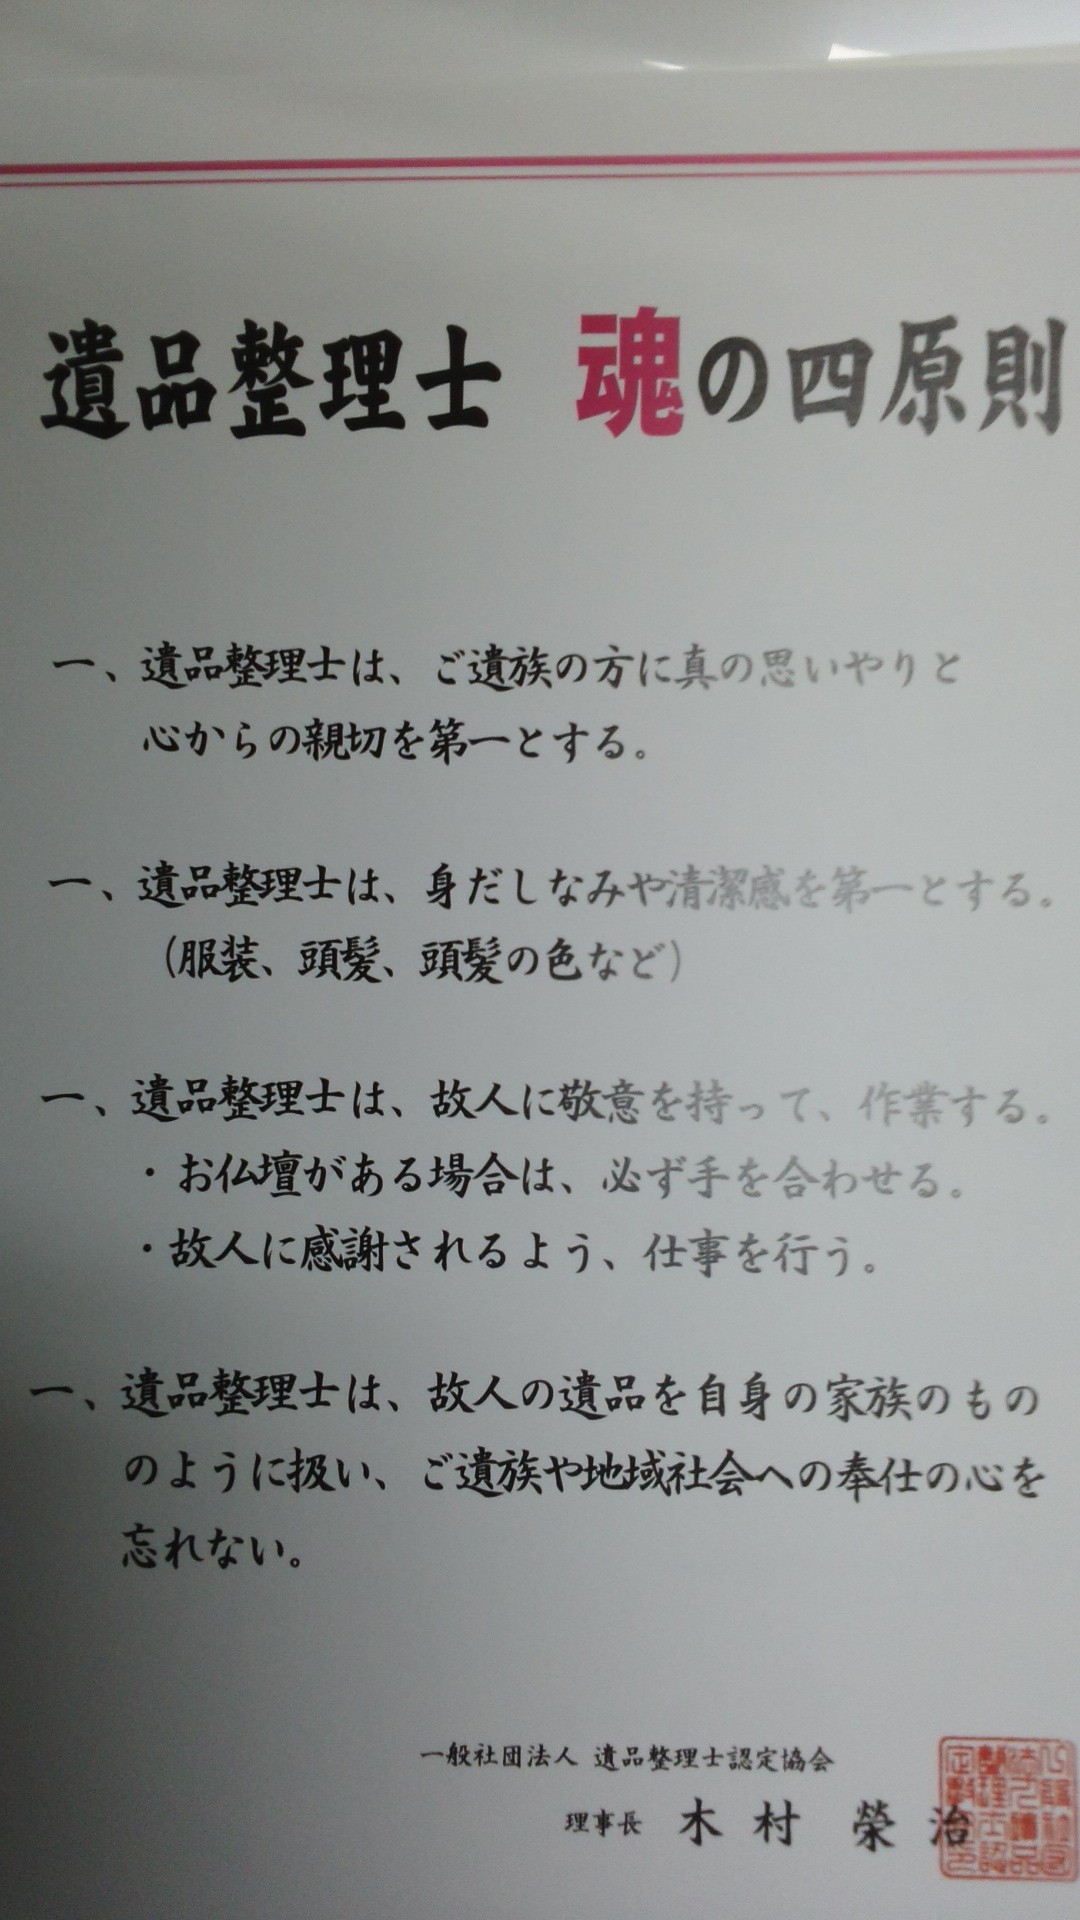 遺品整理士 魂の四原則
一、遺品整理士は、ご遺族の方に真の思いやりと
心からの親切を第一とする。
一、遺品整理士は、身だしなみや清潔感を第一とする。
（服装、頭髪、頭髪の色など）
一、遺品整理士は、故人に敬意を持って、作業する。
・お仏壇がある場合は、必ず手を合わせる。
・故人に感謝されるよう、仕事を行う。
一、遺品整理士は、故人の遺品を自身の家族のもの
のように扱い、ご遺族や地域社会への奉仕の心を
忘れない。
一般社団法人 遺品整理士認定協会
理事長 木村 榮治